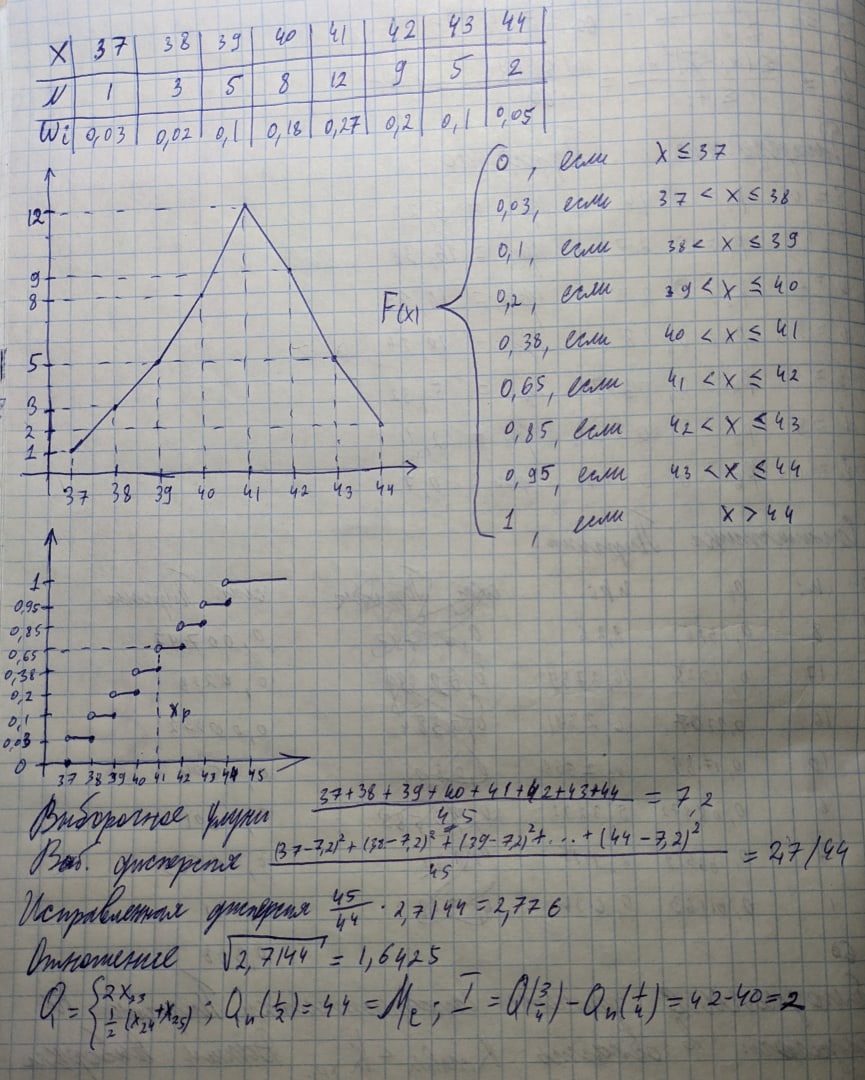 X 37 38 39 40 41 42 43 44
N 1 3 5 8 12 9 5 2
Wi 0,03 0,02 0,1 0,18 0,27 0,2 0,1 0,05
F(x)
0, если x ≤ 37
0,03, если 37 < x ≤ 38
0,1, если 38 < x ≤ 39
0,2, если 39 < x ≤ 40
0,38, если 40 < x ≤ 41
0,65, если 41 < x ≤ 42
0,85, если 42 < x ≤ 43
0,95, если 43 < x ≤ 44
1, если x > 44
12
9
8
5
3
2
1
37 38 39 40 41 42 43 44
1
0,95
0,85
0,65
0,38
0,2
0,1
0,03
0
xp
37 38 39 40 41 42 43 44 45
Выборочное (37+38+39+40+41+42+43+44)/45 = 7,2
Выб. дисперсия ((37-7,2)²+(38-7,2)²+(39-7,2)²+...+(44-7,2)²)/45 = 2,7144
Исправленная дисперсия 45/44 · 2,7144 = 2,776
Отношение √2,7144 = 1,6425
Q = { 2X23 ; ½(x24+x25) ; Qn(½) = 44 = Me ; I = Q(¾) - Qn(¼) = 42-40 = 2